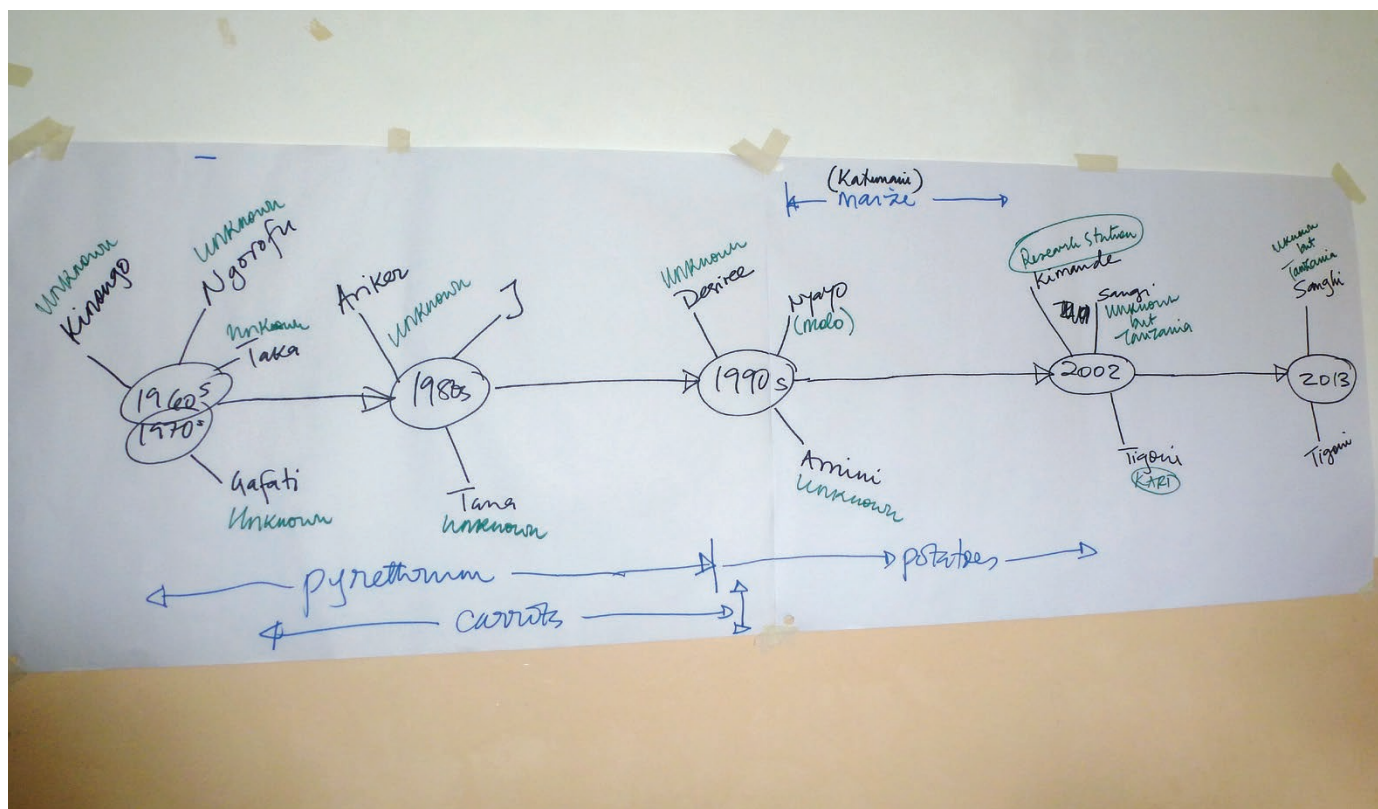 (Katumani)
maize
Unknown
Kinongo
Unknown
Ngorofu
Unknown
Taka
1960s
1970s
Gafati
Unknown
Ariker
Unknown
J
1980s
Tana
Unknown
Unknown
Desiree
Nyayo
(Molo)
1990s
Amini
Unknown
Research Station
Kimande
Sangi
Unknown
but
Tanzania
2002
Tigoni
KARI
but
Tanzania
Sanghi
2013
Tigoni
pyrethrum
potatoes
carrots